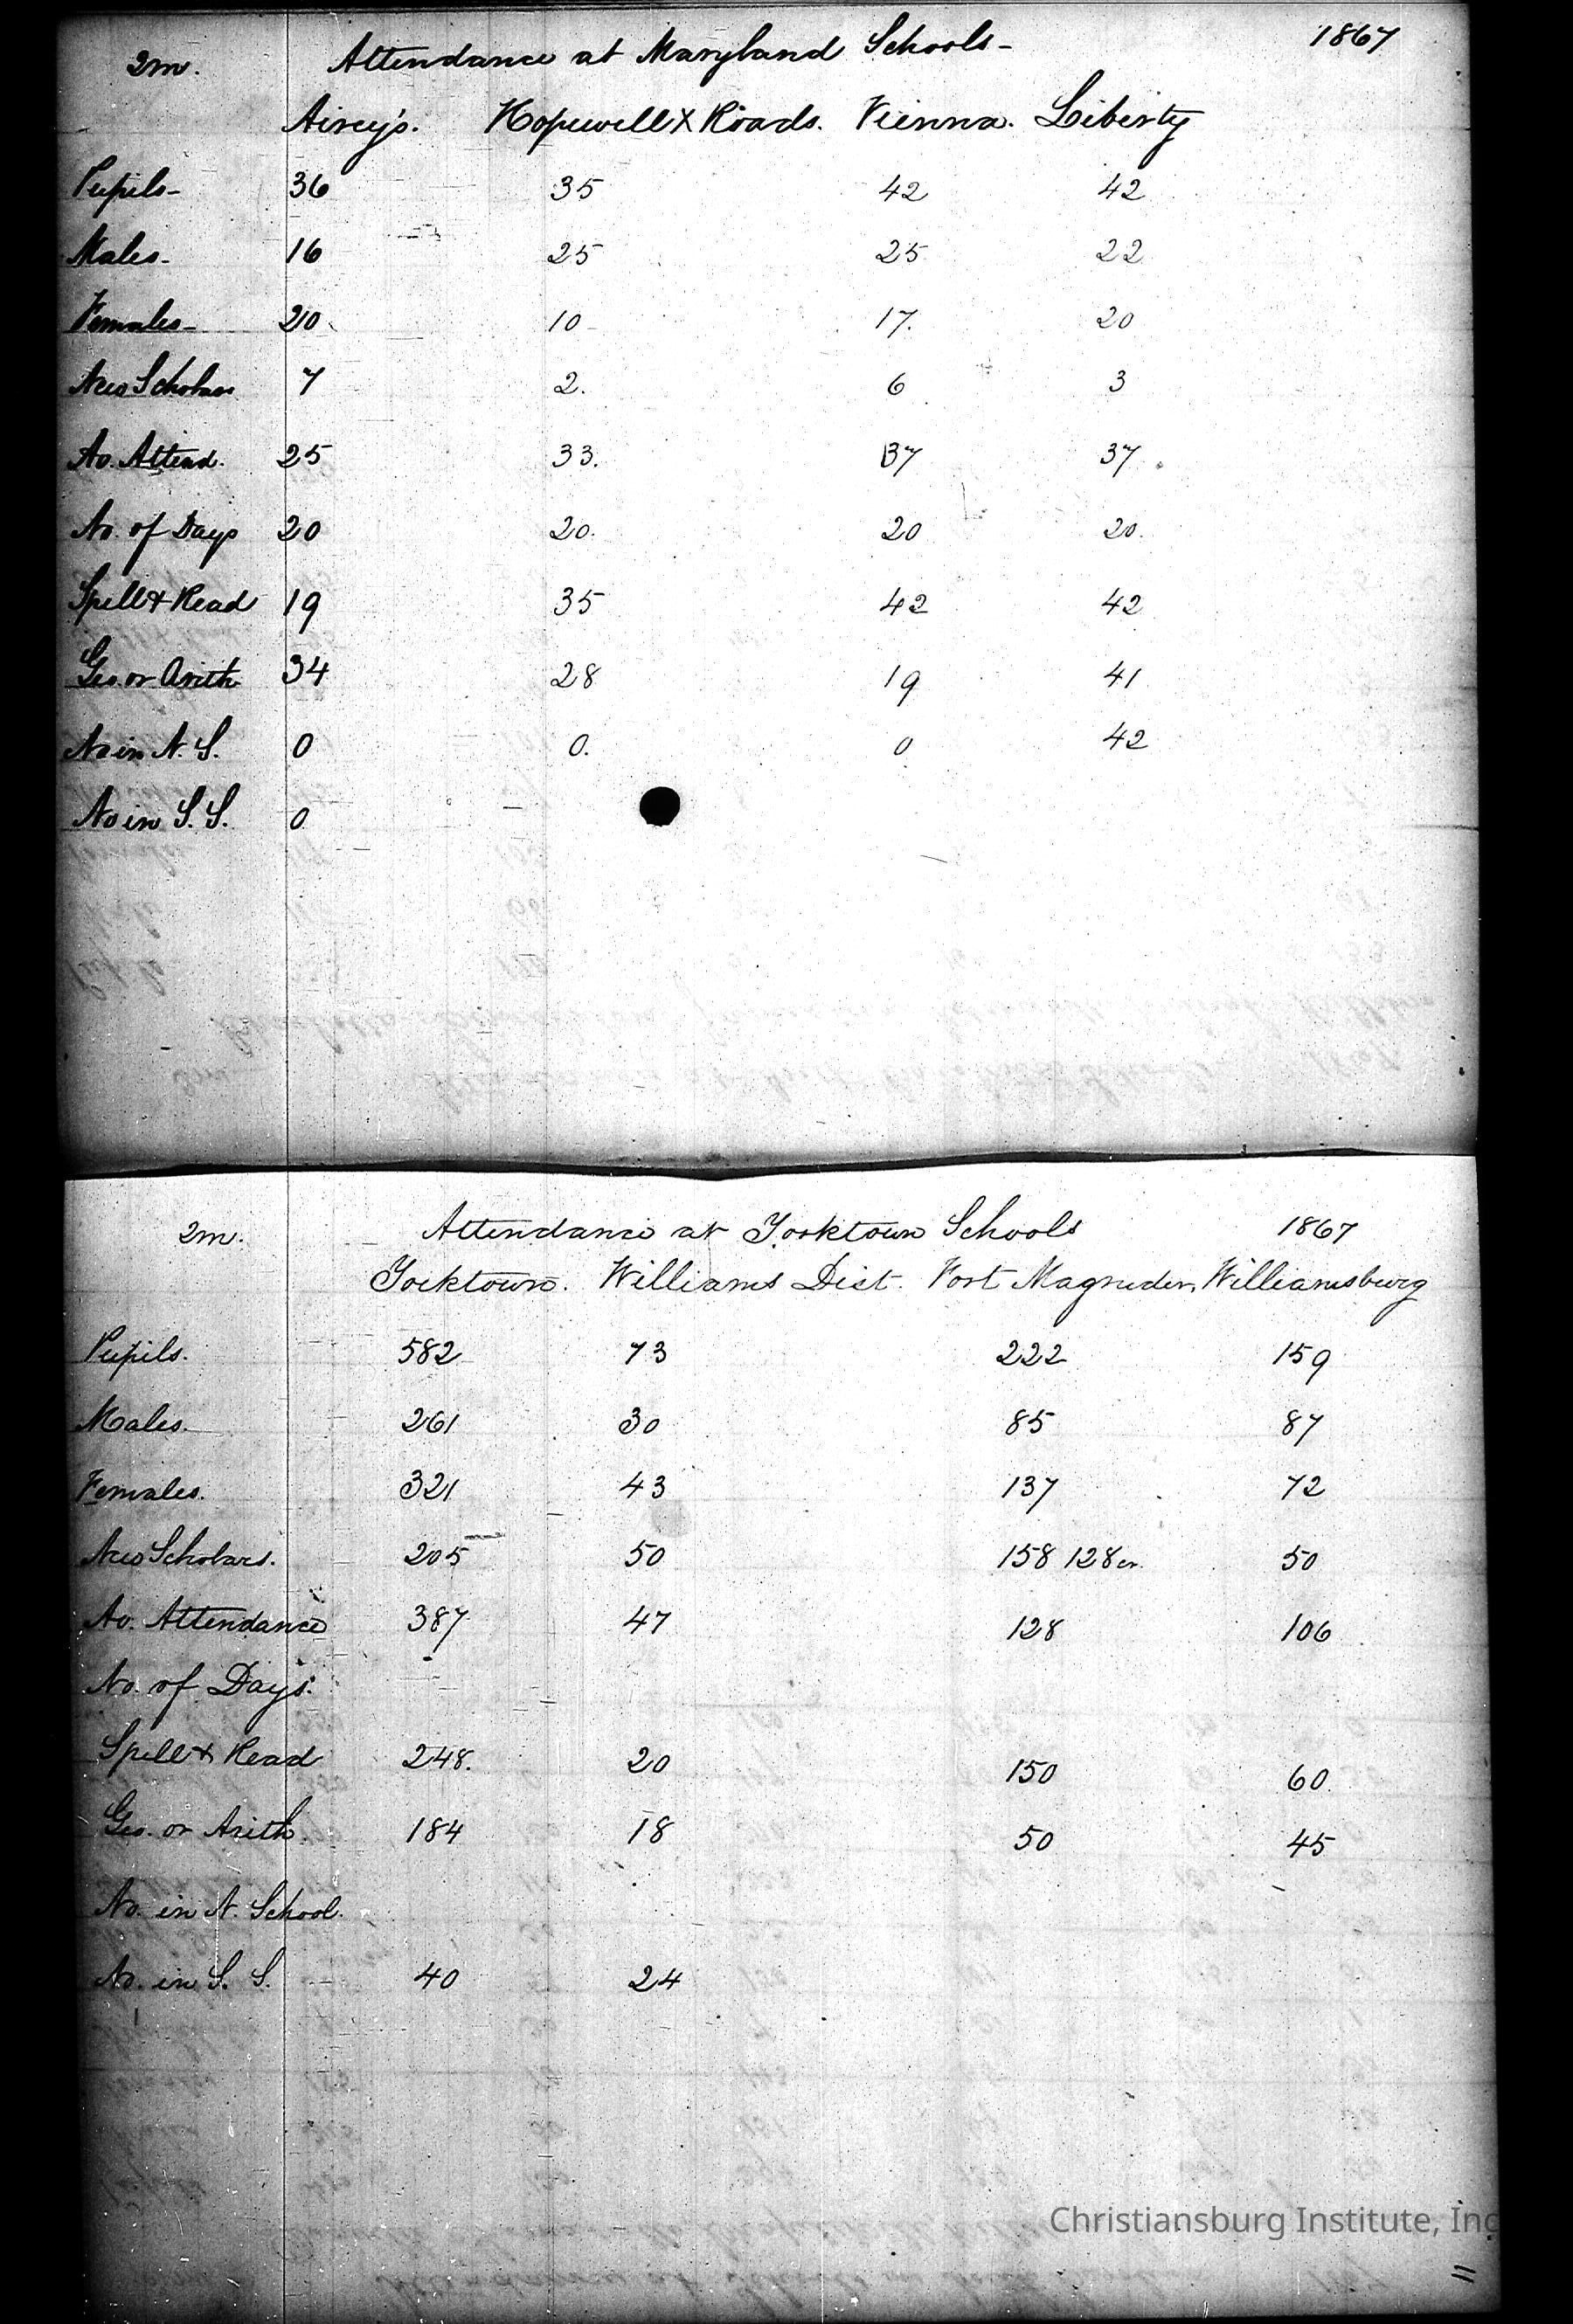 2m. Attendance at Maryland Schools - 1867
Airey's. Hopewell X Roads. Vienna. Liberty
Pupils - 36 35 42 42
Males - 16 25 25 22
Females - 20 10 17. 20
New Scholars 7 2. 6 3
Av. Attend. 25 33. 37 37
No. of Days 20 20. 20 20.
Spell & Read 19 35 42 42
Geo. or Arith 34 28 19 41
No in N. S. 0 0. 0 42
No in S. S. 0
2m. Attendance at Yorktown Schools 1867
Yorktown. Williams Dist. Fort Magruder, Williamsburg
Pupils. 582 73 222 159
Males. 261 30 85 87
Females. 321 43 137 72
New Scholars. 205 50 158 128 50
Av. Attendance 387 47 128 106
No. of Days.
Spell & Read 248. 20 150 60
Geo. or Arith. 184 18 50 45
No. in N. School.
No. in S. S. 40 24
Christiansburg Institute, Inc
11